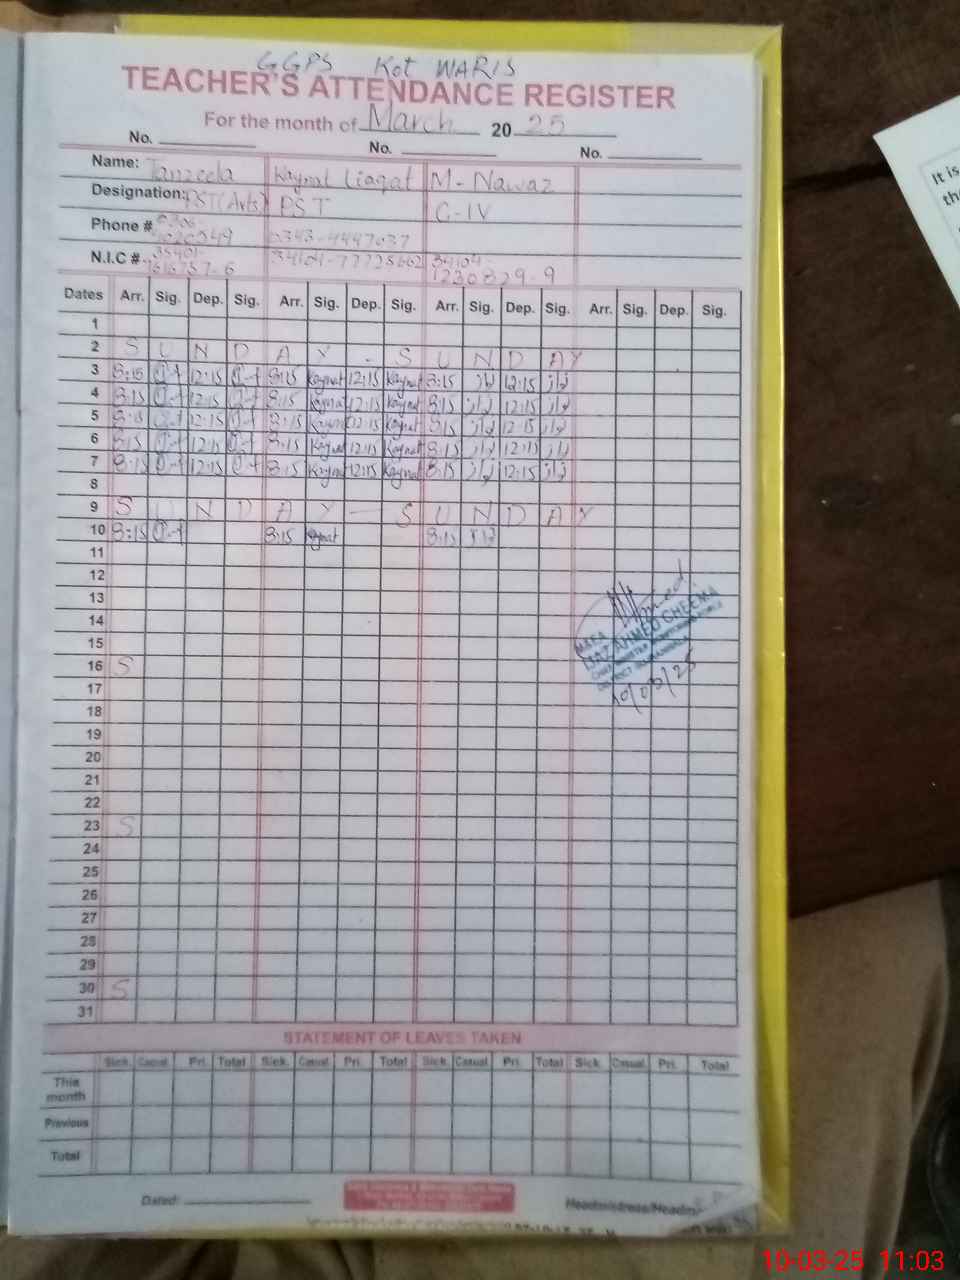 GGPS Kot WARIS
TEACHER'S ATTENDANCE REGISTER
For the month of March 20 25
No. No. No.
Name: Tanzeela Kaynat Liaqat M-Nawaz
Designation: PST(Arts) PST C-IV
Phone # 0306- 0343-4447037
N.I.C # 35401- 34104-
1230829-9
Dates Arr. Sig. Dep. Sig. Arr. Sig. Dep. Sig. Arr. Sig. Dep. Sig. Arr. Sig. Dep. Sig.
1
2 S U N D A Y - S U N D A Y
3 8:15 12:15 8:15 Kaynat 12:15 Kaynat 8:15 نواز 12:15 نواز
4 8:15 12:15 8:15 Kaynat 12:15 Kaynat 8:15 نواز 12:15 نواز
5 8:15 12:15 8:15 Kaynat 12:15 Kaynat 8:15 نواز 12:15 نواز
6 8:15 12:15 8:15 Kaynat 12:15 Kaynat 8:15 نواز 12:15 نواز
7 8:15 12:15 8:15 Kaynat 12:15 Kaynat 8:15 نواز 12:15 نواز
8
9 S U N D A Y - S U N D A Y
10 8:15 8:15 Kaynat 8:15 نواز
11
12
13
14
15
16 S
17
18
19
20
21
22
23 S
24
25
26
27
28
29
30 S
31
Ahmed
AHMED CHEEMA
DISTRICT
10/03/25
STATEMENT OF LEAVES TAKEN
Sick. Casual Pri. Total Sick. Casual Pri. Total Sick. Casual Pri. Total Sick. Casual Pri. Total
This month
Previous
Total
Dated:
Headmistress/Headm
It is
the
10-03-25 11:03